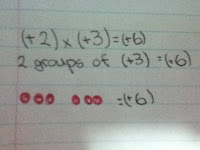 (+2) x (+3) = (+6)
2 groups of (+3) = (+6)
= (+6)